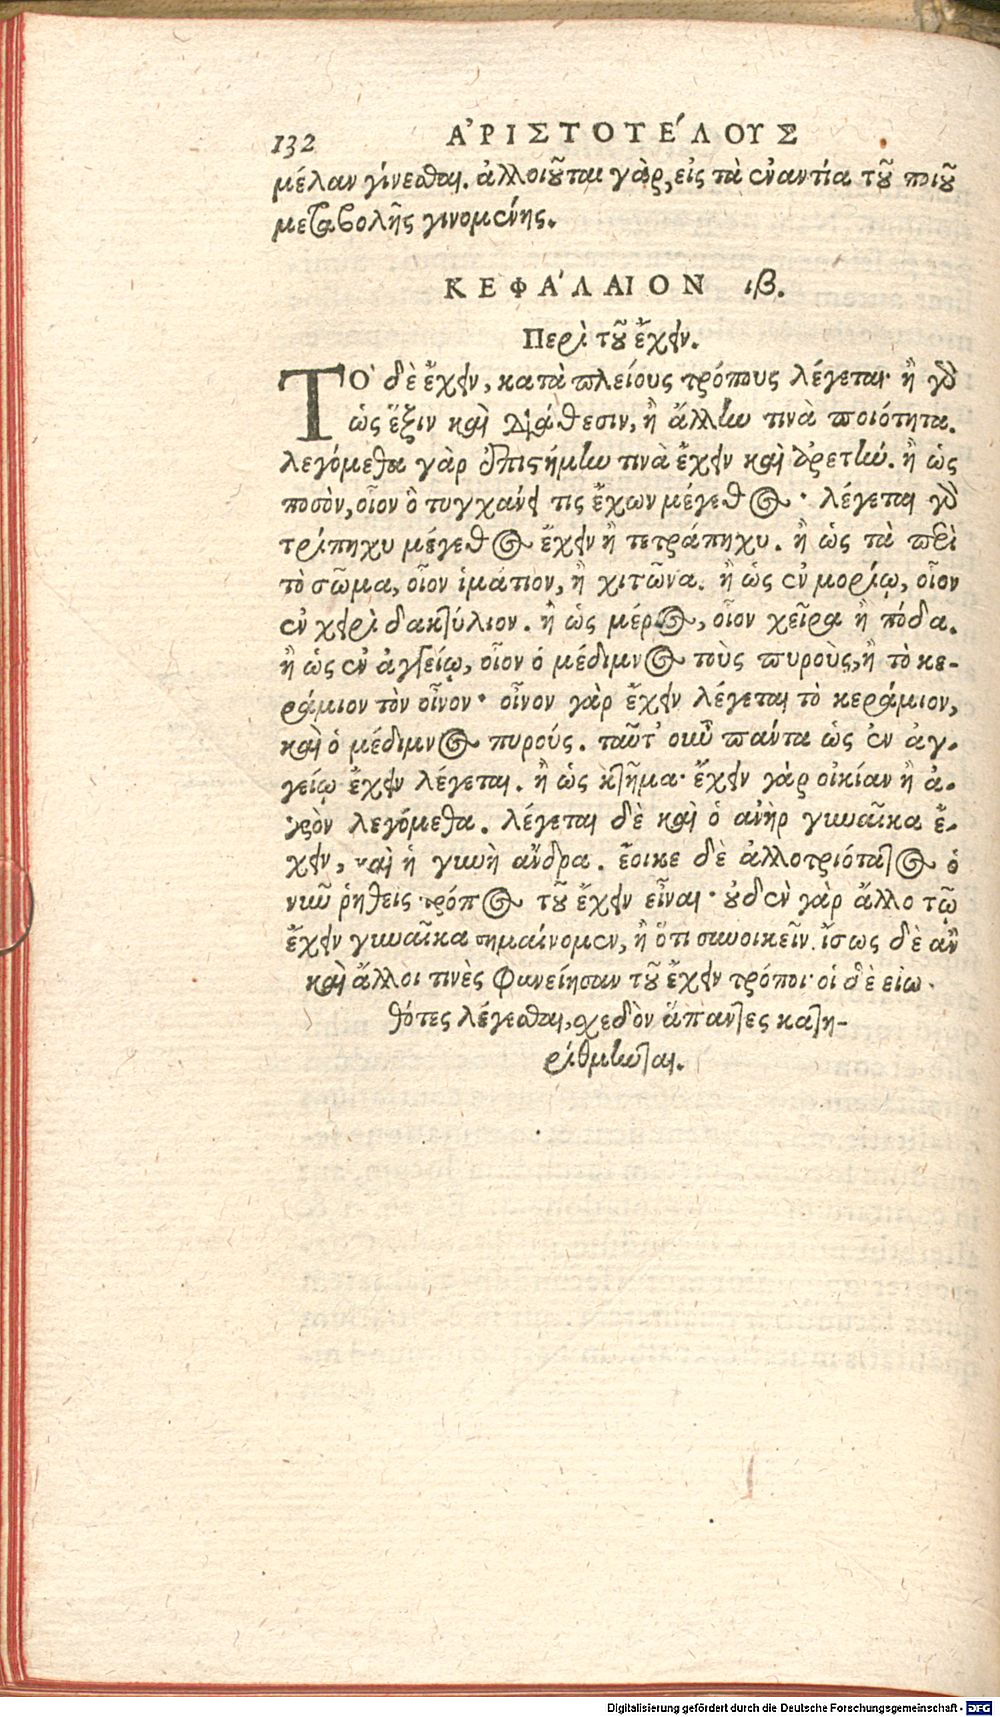 132 ἈΡΙΣΤΟΤΈΛΟΥΣ
μέλαν γίνεσθαι. ἀλλοιοῦται γὰρ, εἰς τὰ ἐναντία τοῦ ποιοῦ
μεταβολῆς γινομένης.
ΚΕΦΆΛΑΙΟΝ ιβ.
Περὶ τοῦ ἔχειν.
ΤῸ δὲ ἔχειν, κατὰ πλείους τρόπους λέγεται· ἢ γὰρ
ὡς ἕξιν καὶ διάθεσιν, ἢ ἄλλην τινὰ ποιότητα.
λεγόμεθα γὰρ ἐπιστήμην τινὰ ἔχειν καὶ ἀρετήν. ἢ ὡς
ποσὸν, οἷον ὃ τυγχάνει τις ἔχων μέγεθος· λέγεται γὰρ
τρίπηχυ μέγεθος ἔχειν ἢ τετράπηχυ. ἢ ὡς τὰ περὶ
τὸ σῶμα, οἷον ἱμάτιον, ἢ χιτῶνα. ἢ ὡς ἐν μορίῳ, οἷον
ἐν χειρὶ δακτύλιον. ἢ ὡς μέρος, οἷον χεῖρα ἢ πόδα.
ἢ ὡς ἐν ἀγγείῳ, οἷον ὁ μέδιμνος τοὺς πυροὺς, ἢ τὸ κε-
ράμιον τὸν οἶνον· οἶνον γὰρ ἔχειν λέγεται τὸ κεράμιον,
καὶ ὁ μέδιμνος πυρούς. ταῦτ' οὖν πάντα ὡς ἐν ἀγ-
γείῳ ἔχειν λέγεται. ἢ ὡς κτῆμα· ἔχειν γὰρ οἰκίαν ἢ ἀ-
γρὸν λεγόμεθα. λέγεται δὲ καὶ ὁ ἀνὴρ γυναῖκα ἔ-
χειν, καὶ ἡ γυνὴ ἄνδρα. ἔοικε δὲ ἀλλοτριότατος ὁ
νῦν ῥηθεὶς τρόπος τοῦ ἔχειν εἶναι· οὐδὲν γὰρ ἄλλο τῷ
ἔχειν γυναῖκα σημαίνομεν, ἢ ὅτι συνοικεῖν. ἴσως δὲ ἂν
καὶ ἄλλοι τινὲς φανείησαν τοῦ ἔχειν τρόποι· οἱ δὲ εἰω-
θότες λέγεσθαι, σχεδὸν ἅπαντες κατη-
ρίθμηνται.
Digitalisierung gefördert durch die Deutsche Forschungsgemeinschaft - DFG